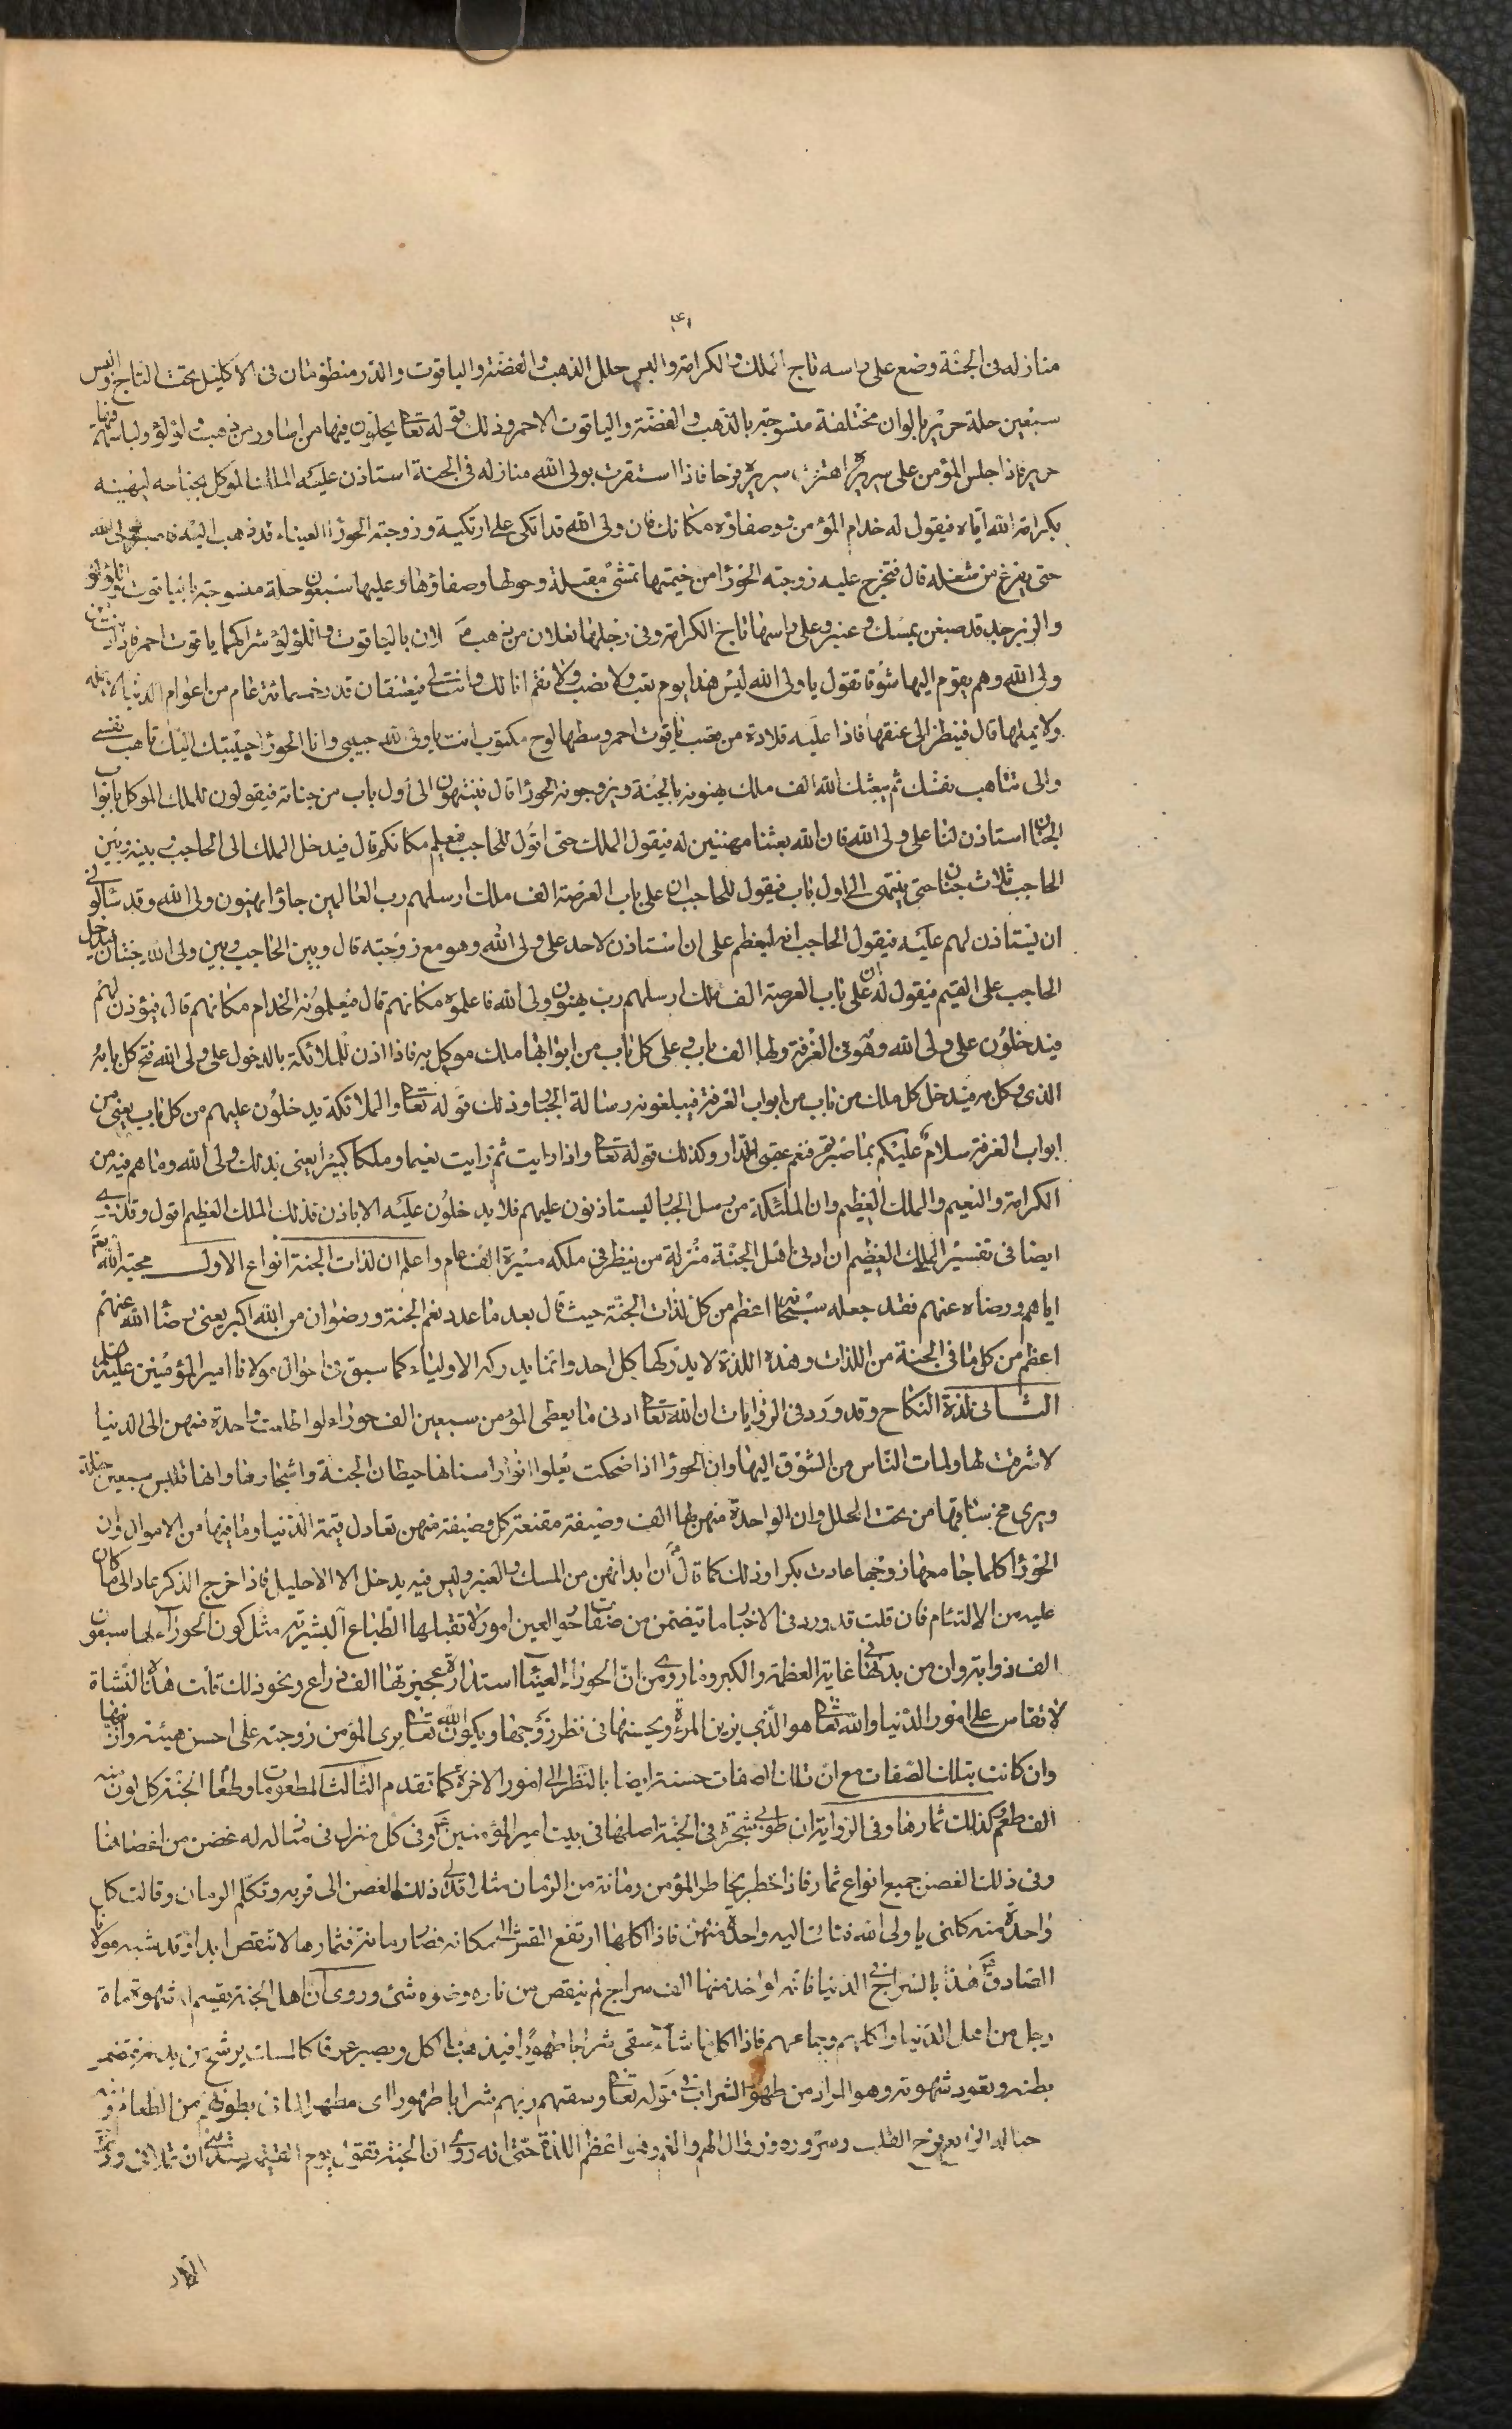 منازله فى الجنة وضع على راسه تاج الملك والكرامة والبس حلل الذهب والفضة والياقوت والدر منظومتان فى الاكليل تحت التاج والبس
سبعين حلة حرير بالوان مختلفة منسوجة بالذهب والفضة والياقوت الاحمر وذلك قوله تعالى يحلون فيها من اساور من ذهب ولؤلؤ ولباسهم فيها
حرير فاذا جلس المؤمن على سريره اهتز سريره فرحا فاذا استقرت بولى الله منازله فى الجنة استاذن عليه الملك الموكل بجنانه ليهنيه
بكرامة الله اياه فيقول له خدام المؤمن ووصفاؤه مكانك فان ولى الله قد اتكى على اريكته وزوجته الحورا العيناء قد ذهبت اليه فاصبر لولى الله
حتى يفرغ من شغله قال فتخرج عليه زوجته الحورا من خيمتها تمشى مقبلة وحولها وصفاؤها وعليها سبعون حلة منسوجة بالياقوت واللؤلؤ
والزبرجد قد صبغن بمسك وعنبر وعلى راسها تاج الكرامة وفى رجليها نعلان من ذهب مكللان بالياقوت واللؤلؤ شراكهما ياقوت احمر فاذا دنت من
ولى الله وهم يقوم اليها شوقا تقول يا ولى الله ليس هذا يوم تعب ولا نصب ولا تقم انا لك وانت لى فيعتنقان قدر خمسمائة عام من اعوام الدنيا لا يملها
ولا تمله قال فينظر الى عنقها فاذا عليه قلادة من قصب ياقوت احمر وسطها لوح مكتوب انت يا ولى الله حبيبى وانا الحورا حبيبتك اليك تاهب نفسى
والى تتاهب نفسك ثم يبعث الله الف ملك يهنونه بالجنة ويزوجونه الحورا قال فينتهون الى اول باب من جنانه فيقولون للملك الموكل بابواب
الجنان استاذن لنا على ولى الله فان الله بعثنا مهنئين له فيقول الملك حتى اقول للحاجب فيعلم مكانكم قال فيدخل الملك الى الحاجب وبينه وبين
الحاجب ثلاث جنان حتى ينتهى الى اول باب فيقول للحاجب ان على باب العرصة الف ملك ارسلهم رب العالمين جاؤا يهنون ولى الله وقد سألونى
ان يستاذن لهم عليه فيقول الحاجب انه ليعظم على ان استاذن لاحد على ولى الله وهو مع زوجته قال وبين الحاجب وبين ولى الله جنتان فيدخل
الحاجب على القيم فيقول له ان على باب العرصة الف ملك ارسلهم رب يهنون ولى الله فاعلموه مكانهم قال فيعلمونه الخدام مكانهم قال فيؤذن لهم
فيدخلون على ولى الله وهو فى الغرفة ولها الف باب وعلى كل باب من ابوابها ملك موكل به فاذا اذن للملائكة بالدخول على ولى الله فتح كل بابه
الذى وكل به فيدخل كل ملك من باب من ابواب الغرفة فيبلغونه رسالة الجبار وذلك قوله تعالى والملائكة يدخلون عليهم من كل باب يعنى من
ابواب الغرفة سلام عليكم بما صبرتم فنعم عقبى الدار وكذلك قوله تعالى واذا رايت ثم رايت نعيما وملكا كبيرا يعنى بذلك ولى الله وما هم فيه من
الكرامة والنعيم والملك العظيم وان الملئكة من رسل الجبار ليستاذنون عليهم فلا يدخلون عليه الا باذن فذلك الملك العظيم اقول وقد روى
ايضا فى تفسير الملك العظيم ان ادنى اهل الجنة منزلة من ينظر فى ملكه مسيرة الف عام واعلم ان لذات الجنة انواع الاول محبة الله تعالى
اياهم ورضاه عنهم فقد جعله سبحانه اعظم من كل لذات الجنة حيث قال بعد ما عدد نعم الجنة ورضوان من الله اكبر يعنى رضا الله عنهم
اعظم من كل ما فى الجنة من اللذات وهذه اللذة لا يدركها كل احد وانما يدركه الاولياء كما سبق فى احوال مولانا امير المؤمنين عليه السلام
الثانى لذة النكاح وقد ورد فى الروايات ان الله تعالى ادنى ما يعطى المؤمن سبعين الف حوراء لو اطلعت واحدة منهن الى الدنيا
لاشرقت لها ولمات الناس من الشوق اليها وان الحورا اذا ضحكت تعلوا انوار اسنانها حيطان الجنة واشجارها وانها تلبس سبعين حلة
ويرى مخ ساقها من تحت الحلل وان الواحدة منهن لها الف وصيفة مقنعة كل وصيفة منهن تعادل قيمة الدنيا وما فيها من الاموال وان
الحورا كلما جامعها زوجها عادت بكرا وذلك كما قال ان ابدانهن من المسك والعنبر وليس فيه يدخل الا الاحليل فاذا خرج الذكر عاد الى ما كان
عليه من الالتئام فان قلت قد ورد فى الاخبار ما تيضمن من صفات حور العين امورا لا تقبلها الطباع البشرية مثل كون الحوراء لها سبعون
الف ذوابة وان من بدنها فى غاية العظمة والكبر وما روى من ان الحوراء العيناء استدارة عجيزتها الف ذراع ونحو ذلك قلت هذه النشاة
لا تقاس على امور الدنيا والله تعالى هو الذى يزين المرءة ويحسنها فى نظر زوجها ويكون الله تعالى يرى المؤمن زوجته على احسن هيئة وازينها
وان كانت بتلك الصفات مع ان تلك الصفات حسنة ايضا بالنظر الى امور الاخرة كما تقدم الثالث المطعومات وطعام الجنة كل لون منه
الف طعم وكذلك ثمارها وفى الرواية ان طوبى شجرة فى الجنة اصلها فى بيت امير المؤمنين وفى كل منزل من منازله غصن من اغصانها
وفى ذلك الغصن جميع انواع ثمار فاذا خطر بخاطر المؤمن رمانة من الرمان مثلا تدلى ذلك الغصن الى قربه وتكلم الرمان وقالت كل
واحدة منه كلنى يا ولى الله فتاتى اليه واحدة منهن فاذا اكلها ارتفع القشر الى مكانه فصار رمانة فثمارها لا تنقص ابدا وقد شبه مولانا
الصادق هذا بالسراج فى الدنيا فانه لو اخذ منها الف سراج لم ينقص من ناره وضوه شئ وروى ان اهل الجنة تقسم لهم شهوة ماة
رجل من اهل الدنيا واكلهم وجماعهم فاذا اكل ما شاء سقى شرابا طهورا فيذهب ما اكل ويصير عرقا كالمسك يرشح من بدنه فتضمر
بطنه وتعود شهوته وهو المراد من طهور الشراب فى قوله تعالى وسقهم ربهم شرابا طهورا اى مطهرا لما فى بطونهم من الطعام
الرابع فرح القلب وسروره وزوال الهم والغم وهو اعظم اللذة حتى انه روى ان الجنة تقول يوم القيمة
الدار